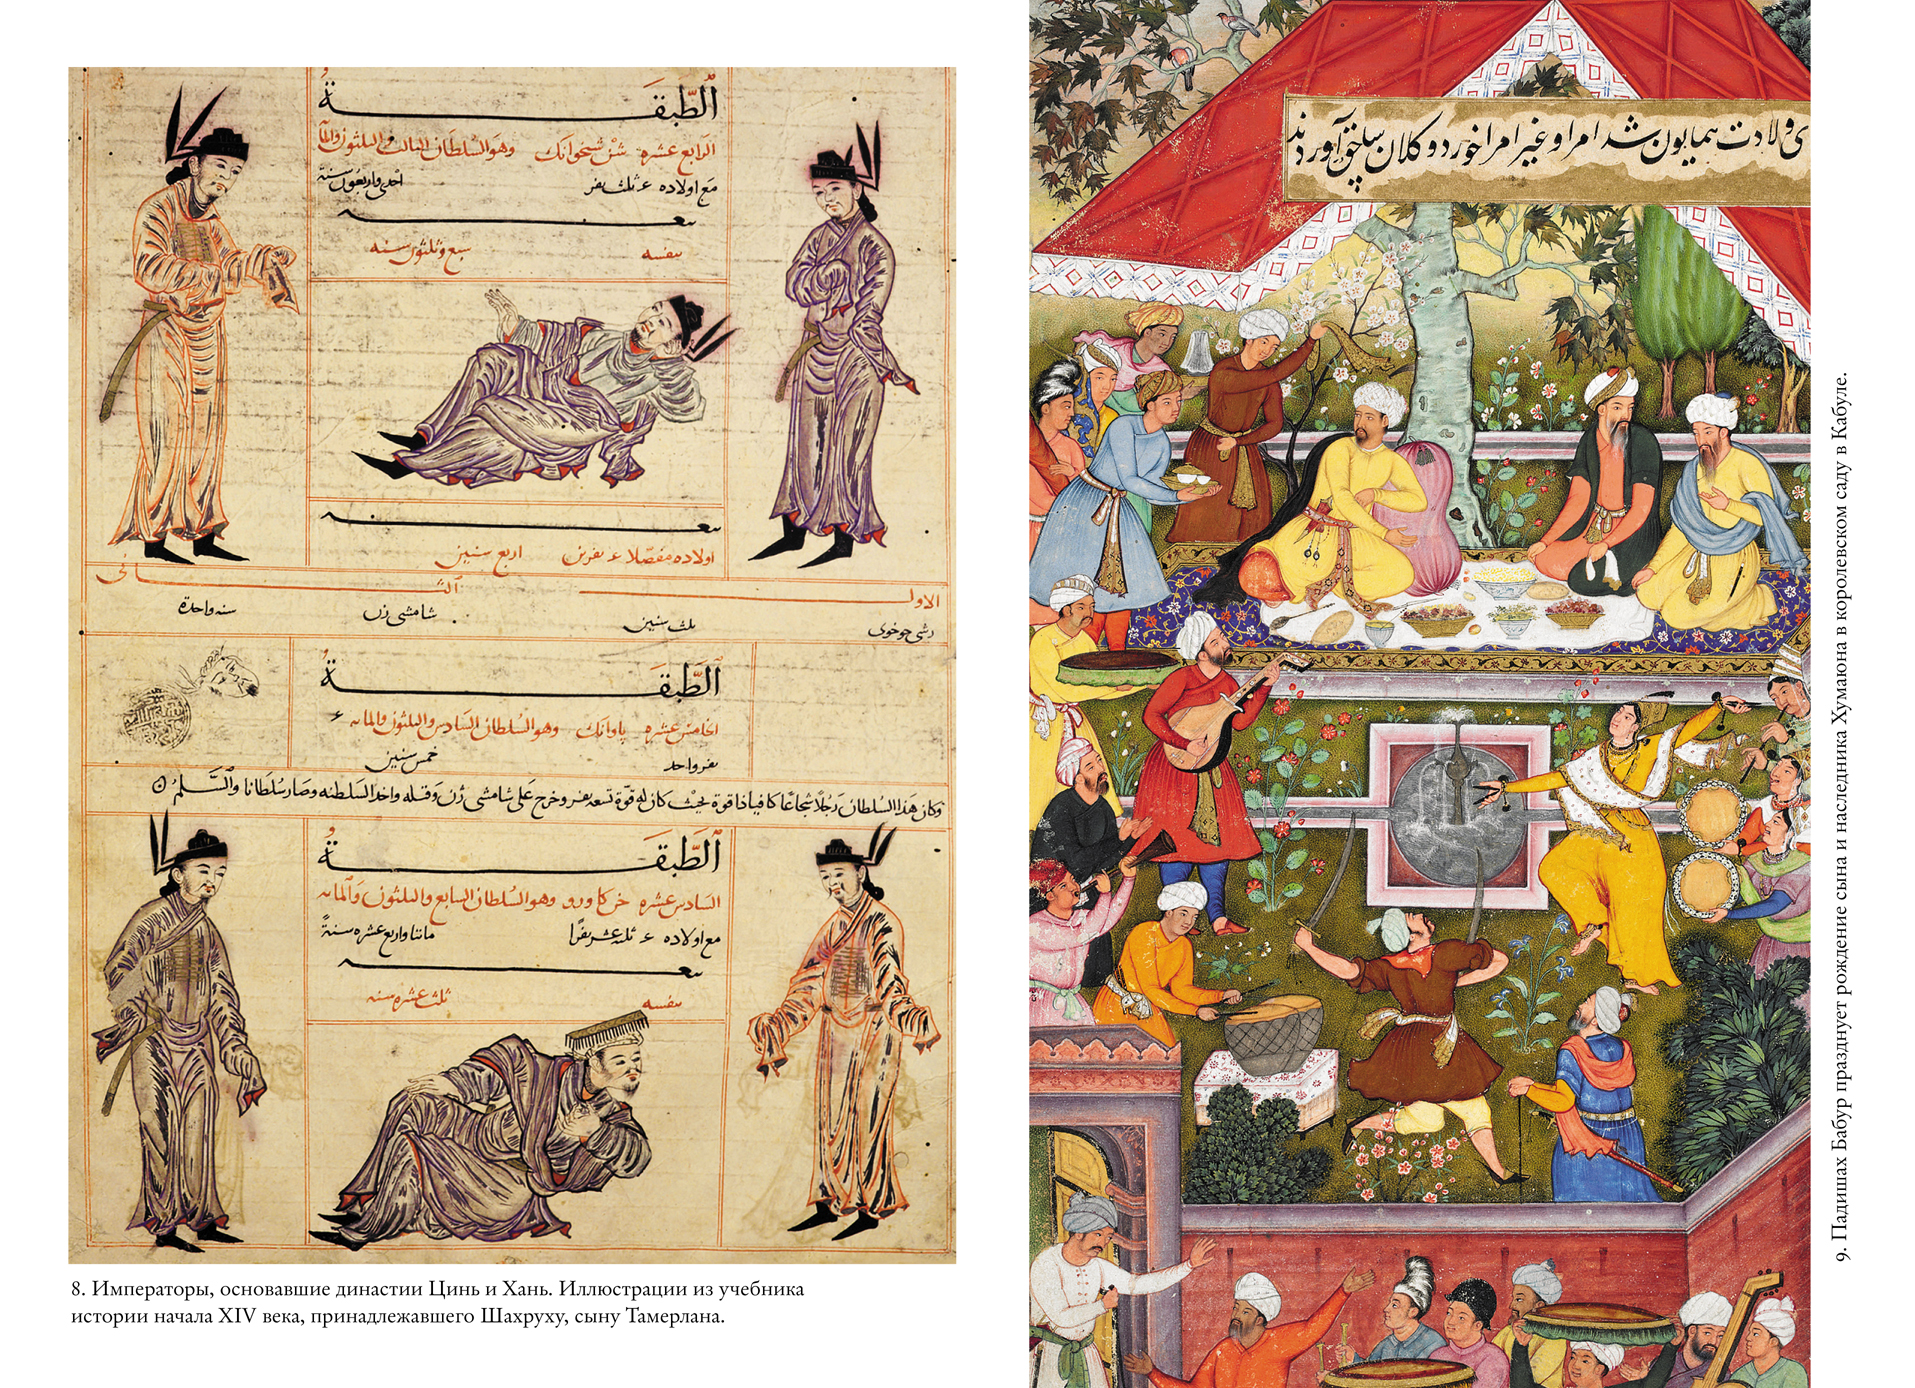 الطبقـــة
الرابع عشره شن شخوانك وهو السلطان الثالث والثلثون والمائة
مع اولاده ثلث نفر احدى واربعون سنة
بنفسه سبع وثلثون سنه
اولاده مفصلا نفرين اربع سنين
الاول الثانى
ثلث سنين شامشى زن سنه واحدة
الطبقـــة
الخامس عشره پاوانك وهو السلطان السادس والثلثون والمائه
نفر واحد خمس سنين
وكان هذا السلطان رجلا شجاعا كافيا ذا قوة بحيث كان له قوة تسعه نفر وخرج على شامشى زن وقتله واخذ السلطنه وصار سلطانا والسلم
الطبقـــة
السادس عشره خن كاوزو وهو السلطان السابع والثلثون والمائه
مع اولاده ثلثة عشر نفرا مائتا واربع عشره سنة
بنفسه ثلث عشره سنه
8. Императоры, основавшие династии Цинь и Хань. Иллюстрации из учебника
истории начала XIV века, принадлежавшего Шахруху, сыну Тамерлана.
ی ولادت همایون شد امرا و غیر امرا خورد و کلان ساچق آوردند
9. Падишах Бабур празднует рождение сына и наследника Хумаюна в королевском саду в Кабуле.